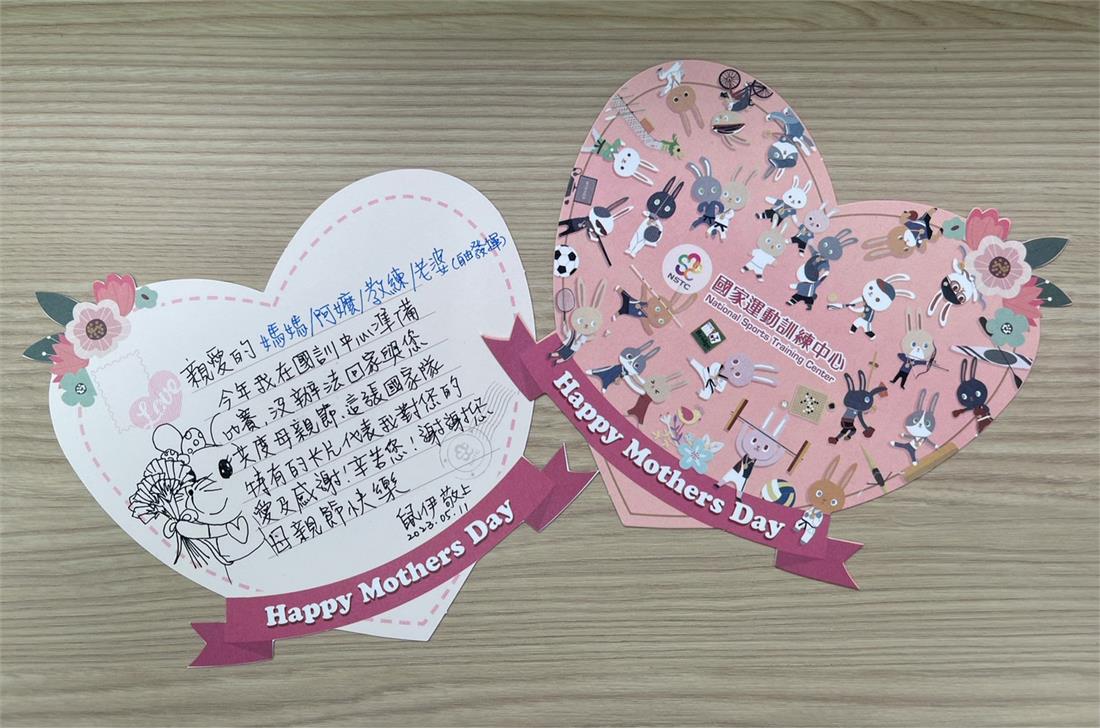 親愛的 媽媽/阿嬤/教練/老婆(自由發揮)
今年我在國訓中心準備
比賽,沒辦法回家跟您
共度母親節,這張國家隊
特有的卡片代表我對您的
愛及感謝!辛苦您!謝謝您
母親節快樂
敬上
2023.05.11
Love
Happy Mothers Day
NSTC
國家運動訓練中心
National Sports Training Center
Happy Mothers Day